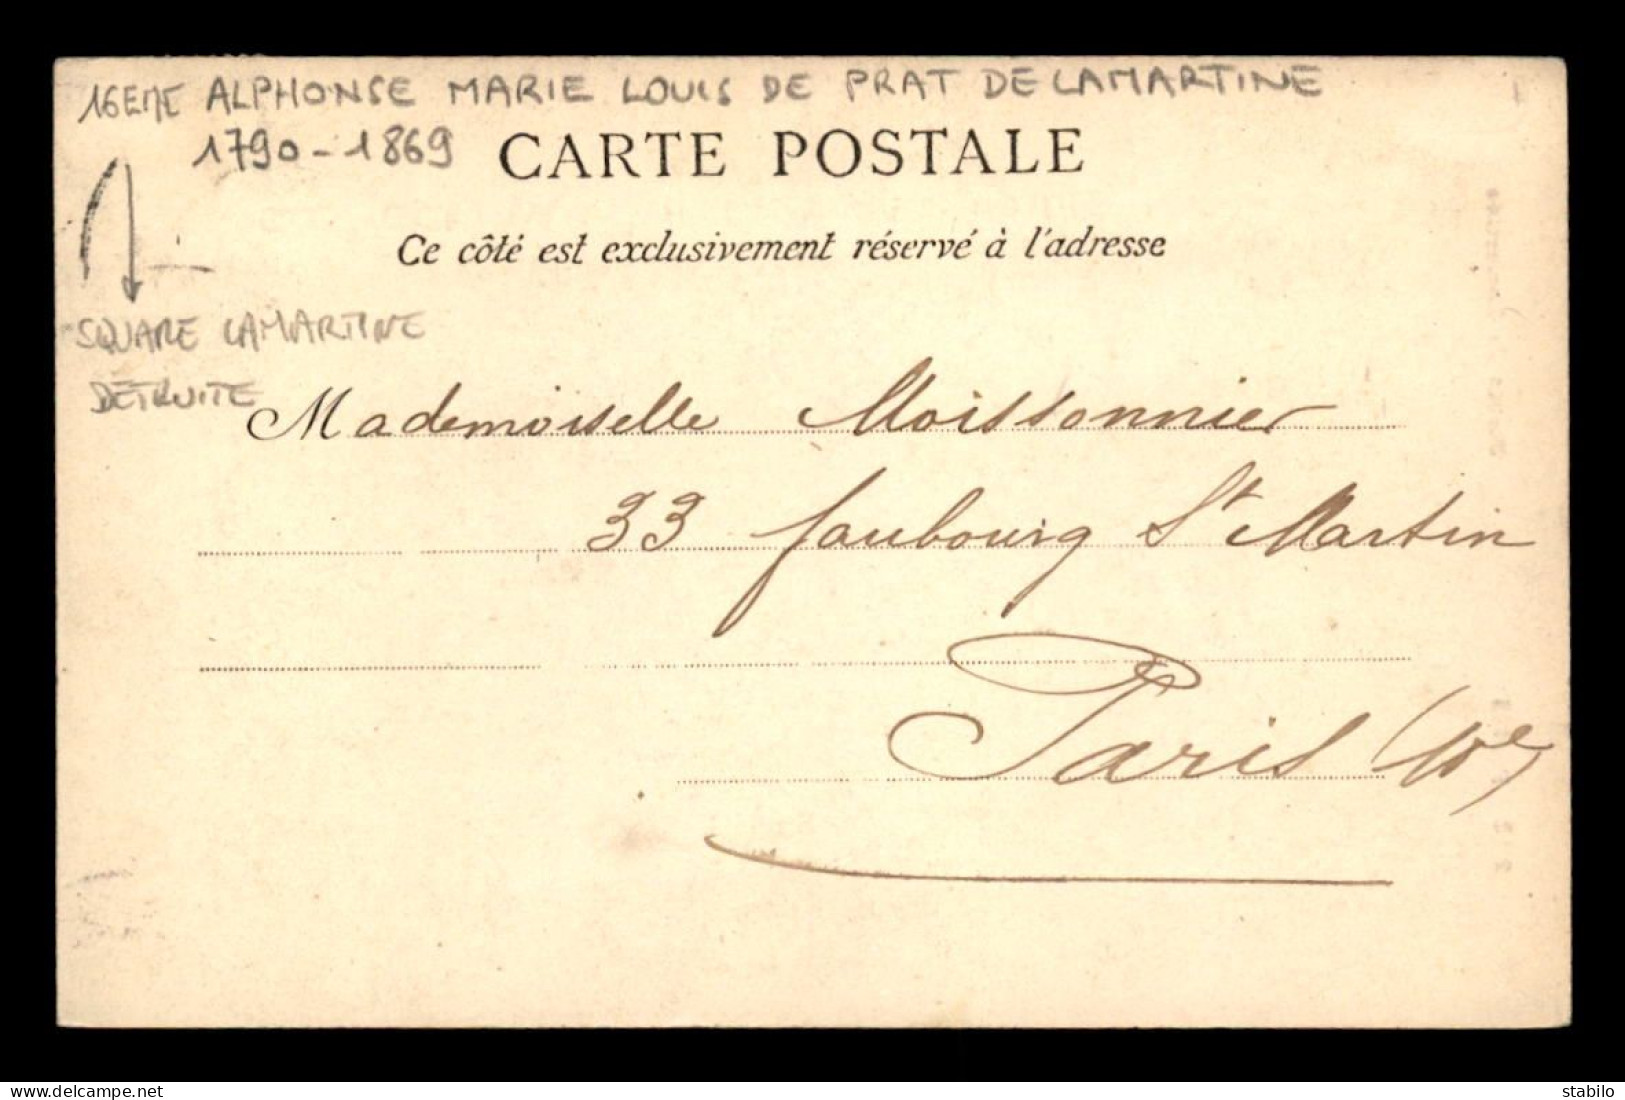 16EME ALPHONSE MARIE LOUIS DE PRAT DE LAMARTINE
1790-1869
CARTE POSTALE
Ce côté est exclusivement réservé à l'adresse
SQUARE LAMARTINE
DÉTRUITE
Mademoiselle Moissonnier
33 faubourg St Martin
Paris (10e)
delcampe.net
stabilo